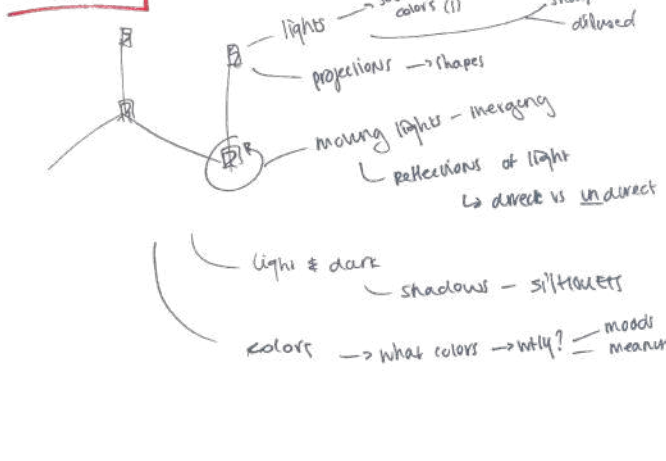 colors (1)
lights
diffused
projections → shapes
moving lights - merging
reflections of light
↳ direct vs undirect
light & dark
shadows - silhouets
colors → what colors → why?
moods